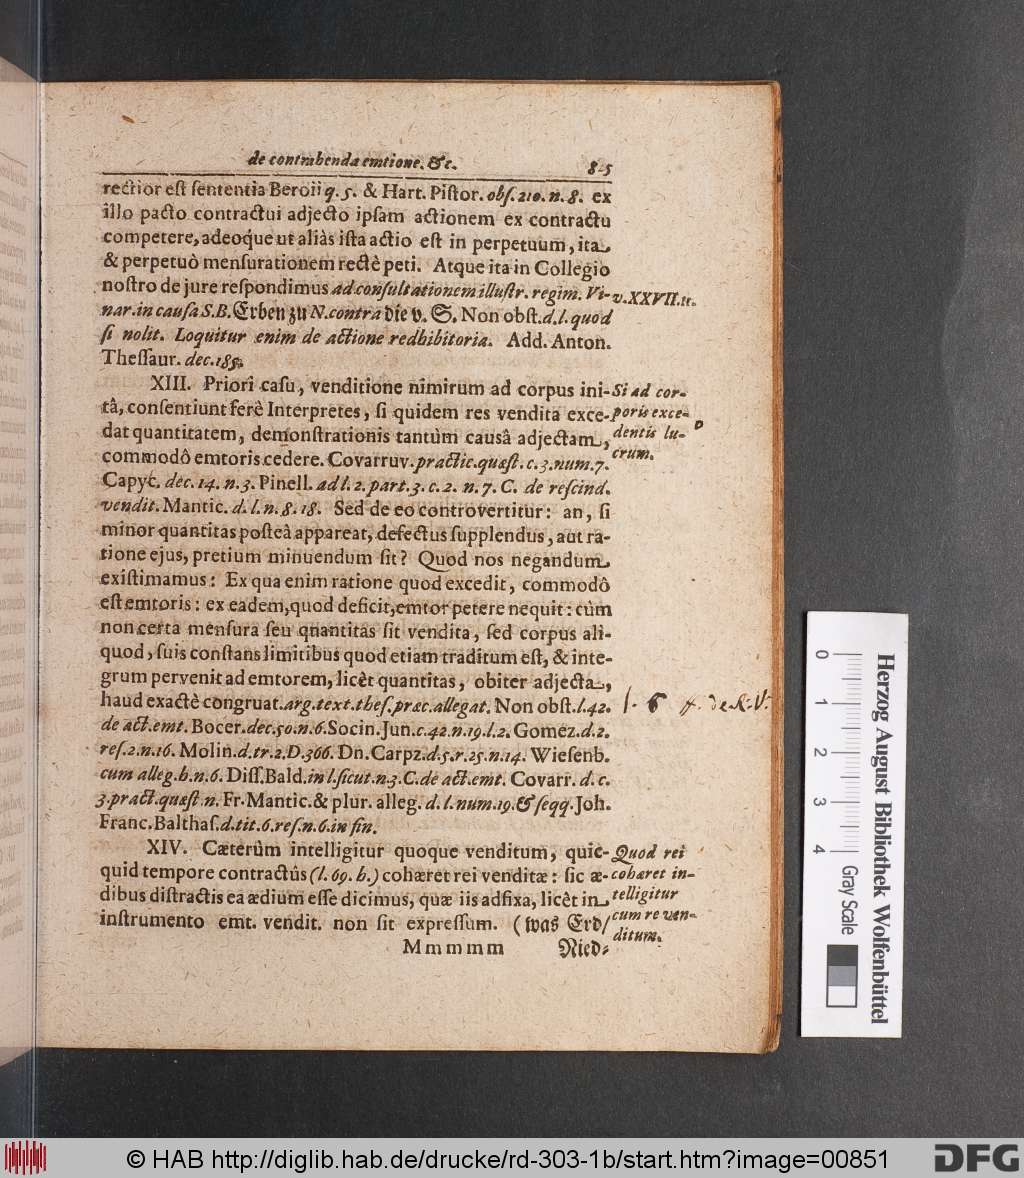 de contrahenda emtione. &c. 8-5
rectior est sententia Beroii q. 5. & Hart. Pistor. obs. 210. n. 8. ex
illo pacto contractui adjecto ipsam actionem ex contractu
competere, adeoque ut aliàs ista actio est in perpetuum, ita
& perpetuò mensurationem rectè peti. Atque ita in Collegio
nostro de jure respondimus ad consultationem illustr. regim. Vi-
v. XXVII. tt.
nar. in causa S. B. Erben zu N. contra die v. S. Non obst. d. l. quod
si nolit. Loquitur enim de actione redhibitoria. Add. Anton.
Thessaur. dec. 185.
XIII. Priori casu, venditione nimirum ad corpus ini-
tâ, consentiunt ferè Interpretes, si quidem res vendita exce-
dat quantitatem, demonstrationis tantùm causâ adjectam,
commodô emtoris cedere. Covarruv. practic. quæst. c. 3. num. 7.
Si ad cor-
poris exce-
dentis lu-
crum.
Capyc. dec. 14. n. 3. Pinell. ad l. 2. part. 3. c. 2. n. 7. C. de rescind.
vendit. Mantic. d. l. n. 8. 18. Sed de eo controvertitur: an, si
minor quantitas posteà appareat, defectus supplendus, aut ra-
tione ejus, pretium minuendum sit? Quod nos negandum
existimamus: Ex qua enim ratione quod excedit, commodô
est emtoris: ex eadem, quod deficit, emtor petere nequit: cùm
non certa mensura seu quantitas sit vendita, sed corpus ali-
quod, suis constans limitibus quod etiam traditum est, & inte-
grum pervenit ad emtorem, licèt quantitas, obiter adjecta,
haud exactè congruat. arg. text. thes. præc. allegat. Non obst. l. 42.
l. 6 ff. de R. V.
de act. emt. Bocer. dec. 50. n. 6. Socin. Jun. c. 42. n. 19. l. 2. Gomez. d. 2.
res. 2. n. 16. Molin. d. tr. 2. D. 366. Dn. Carpz. d. 5. r. 25. n. 14. Wiesenb.
cum alleg. h. n. 6. Diss. Bald. in l. sicut. n. 3. C. de act. emt. Covarr. d. c.
3. pract. quæst. n. Fr. Mantic. & plur. alleg. d. l. num. 19. & seqq. Joh.
Franc. Balthas. d. tit. 6. res. n. 6. in fin.
XIV. Cæterùm intelligitur quoque venditum, quic-
quid tempore contractûs (l. 69. h.) cohæret rei venditæ: sic æ-
dibus distractis ea ædium esse dicimus, quæ iis adfixa, licèt in
instrumento emt. vendit. non sit expressum. (was Erd/
Quod rei
cohæret in-
telligitur
cum re ven-
ditum.
Mmmmm Nied-
0 1 2 3 4
Gray Scale
Herzog August Bibliothek Wolfenbüttel
© HAB http://diglib.hab.de/drucke/rd-303-1b/start.htm?image=00851
DFG